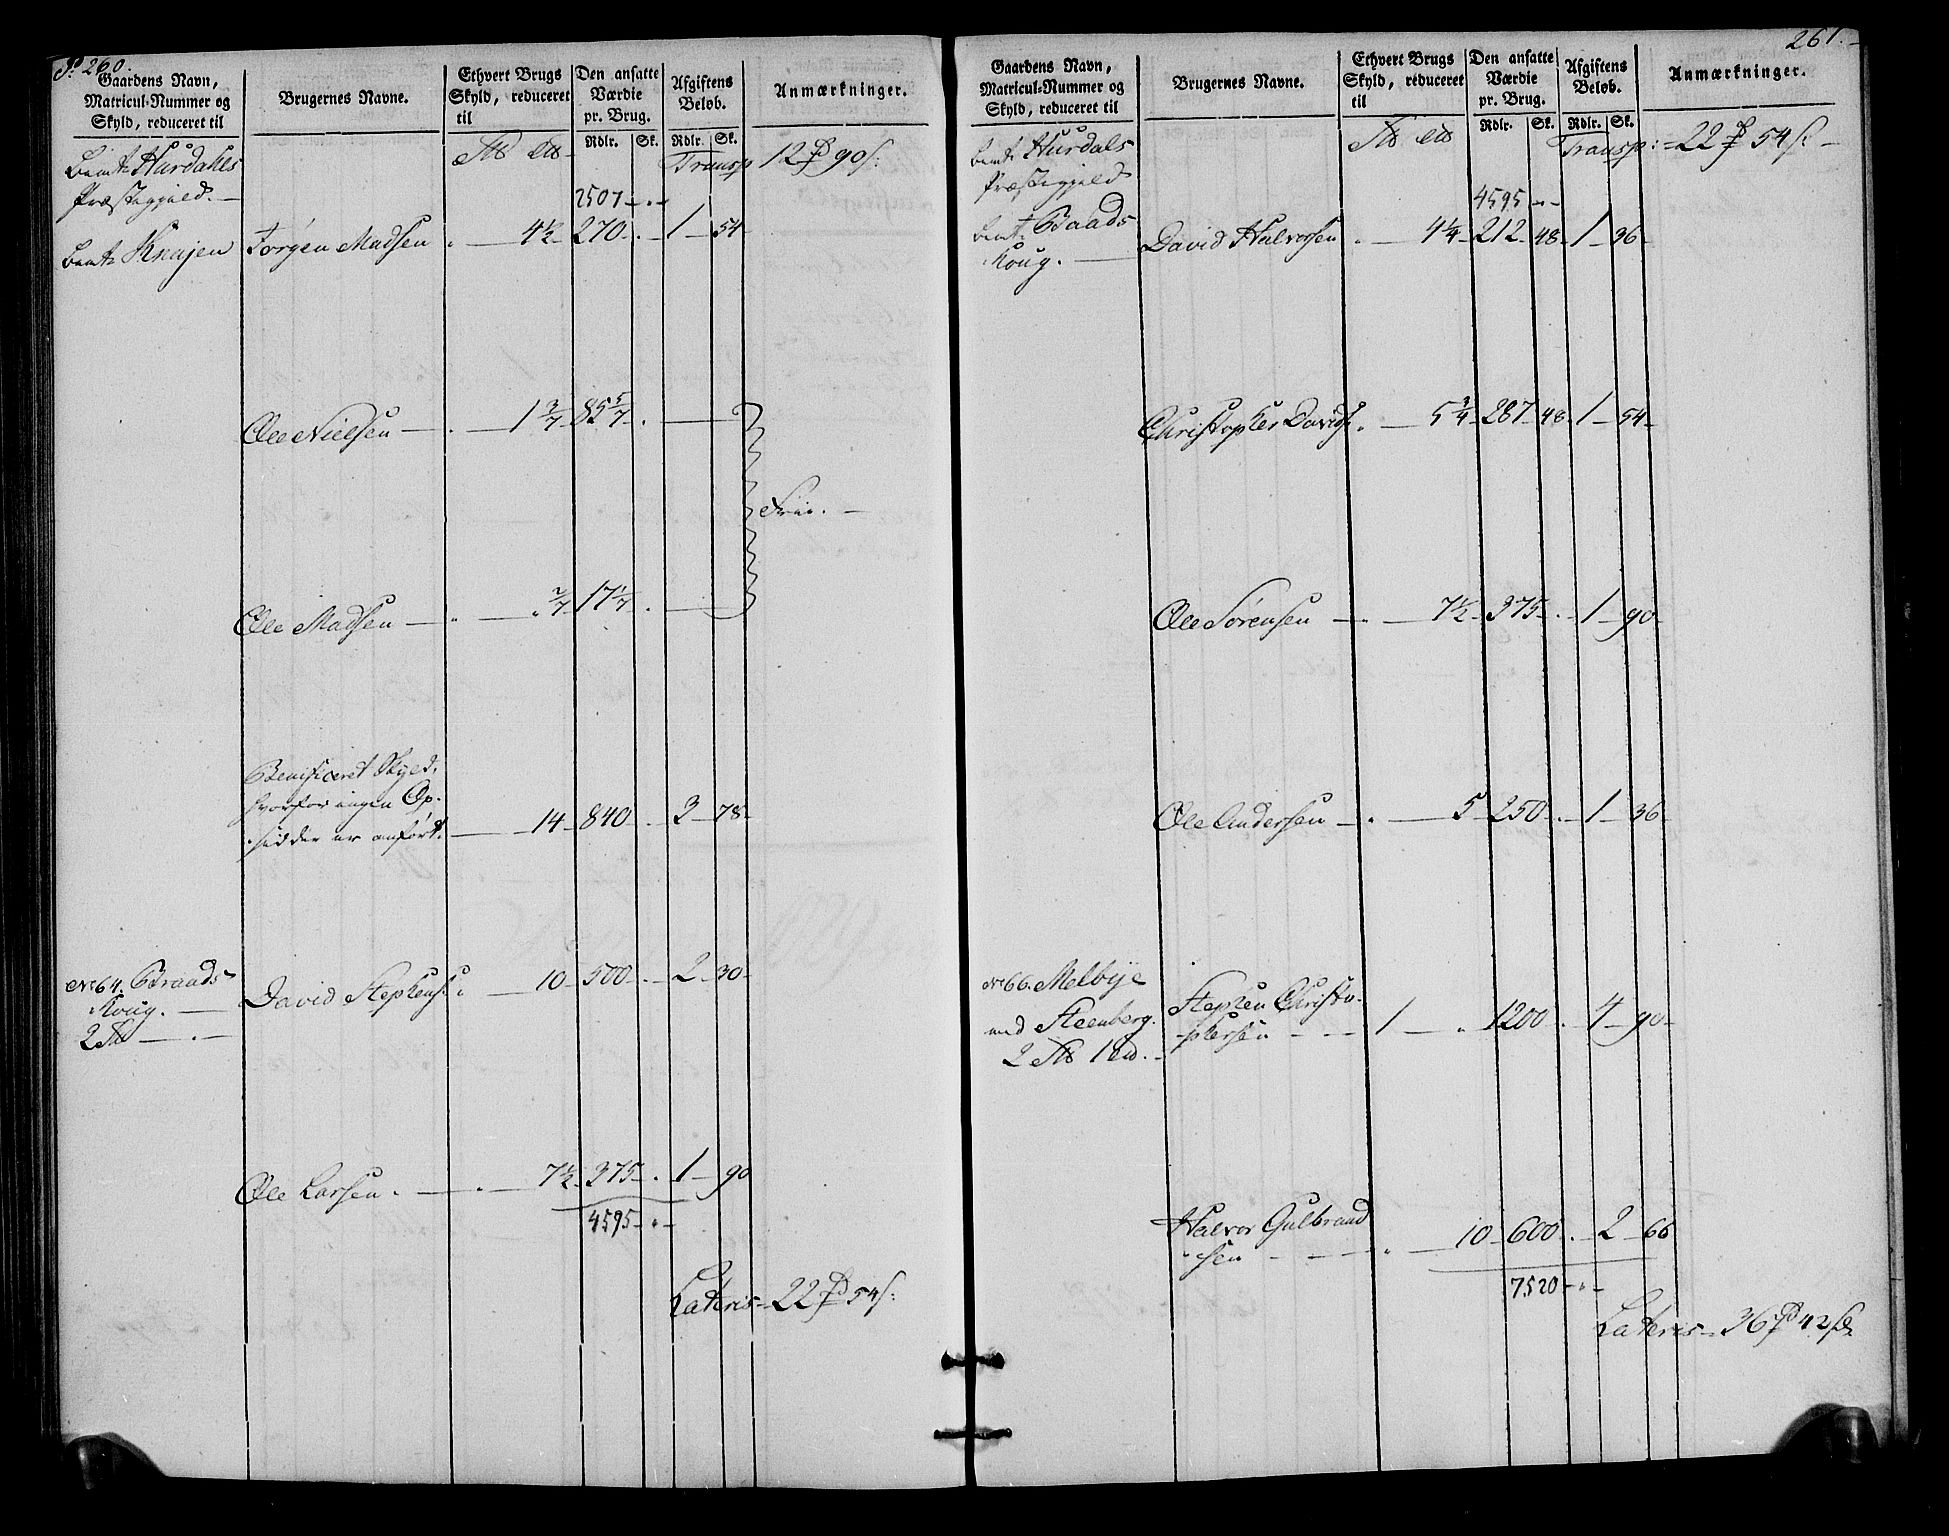 P. 260.
Gaardens Navn,
Matricul-Nummer og
Skyld, reduceret til
Brugernes Navne.
Ethvert Brugs
Skyld, reduceret
til
Den ansatte
Værdie
pr. Brug.
Rdlr. Sk.
Afgiftens
Beløb.
Rdlr. Sk.
Anmærkninger.
Hurdahls
Præstegjeld.
Transp 12 90
2507
Knajen Jørgen Madsen 4½ 270 1 54
Ole Nielsen 1 3/7 85 5/7
Frie.
Ole Madsen 2/7 17 1/7
Benificeret
hvorfor ingen Op-
sidder er anført. 14 840 3 78
No 64. Braads
Koug.
2
David Stephens. 10 500 2 30
Ole Larsen. 7½ 375 1 90
4595
Lateris 22 54
261.
Gaardens Navn,
Matricul-Nummer og
Skyld, reduceret til
Brugernes Navne.
Ethvert Brugs
Skyld, reduceret
til
Den ansatte
Værdie
pr. Brug.
Rdlr. Sk.
Afgiftens
Beløb.
Rdlr. Sk.
Anmærkninger.
Hurdals
Præstegjeld
Transp: 22 54
4595
Baads
Koug.
David Halvorsen 4¼ 212 48 1 36
Christopher Davids. 5¾ 287 48 1 54
Ole Sørensen 7½ 375 1 90
Ole Andersen 5 250 1 36
No 66. Melbye
med Steenberg.
2 1
Stephen Christo-
phersen 1 1200 4 90
Halvor Gulbrand
sen 10 600 2 66
7520
Lateris 36 42